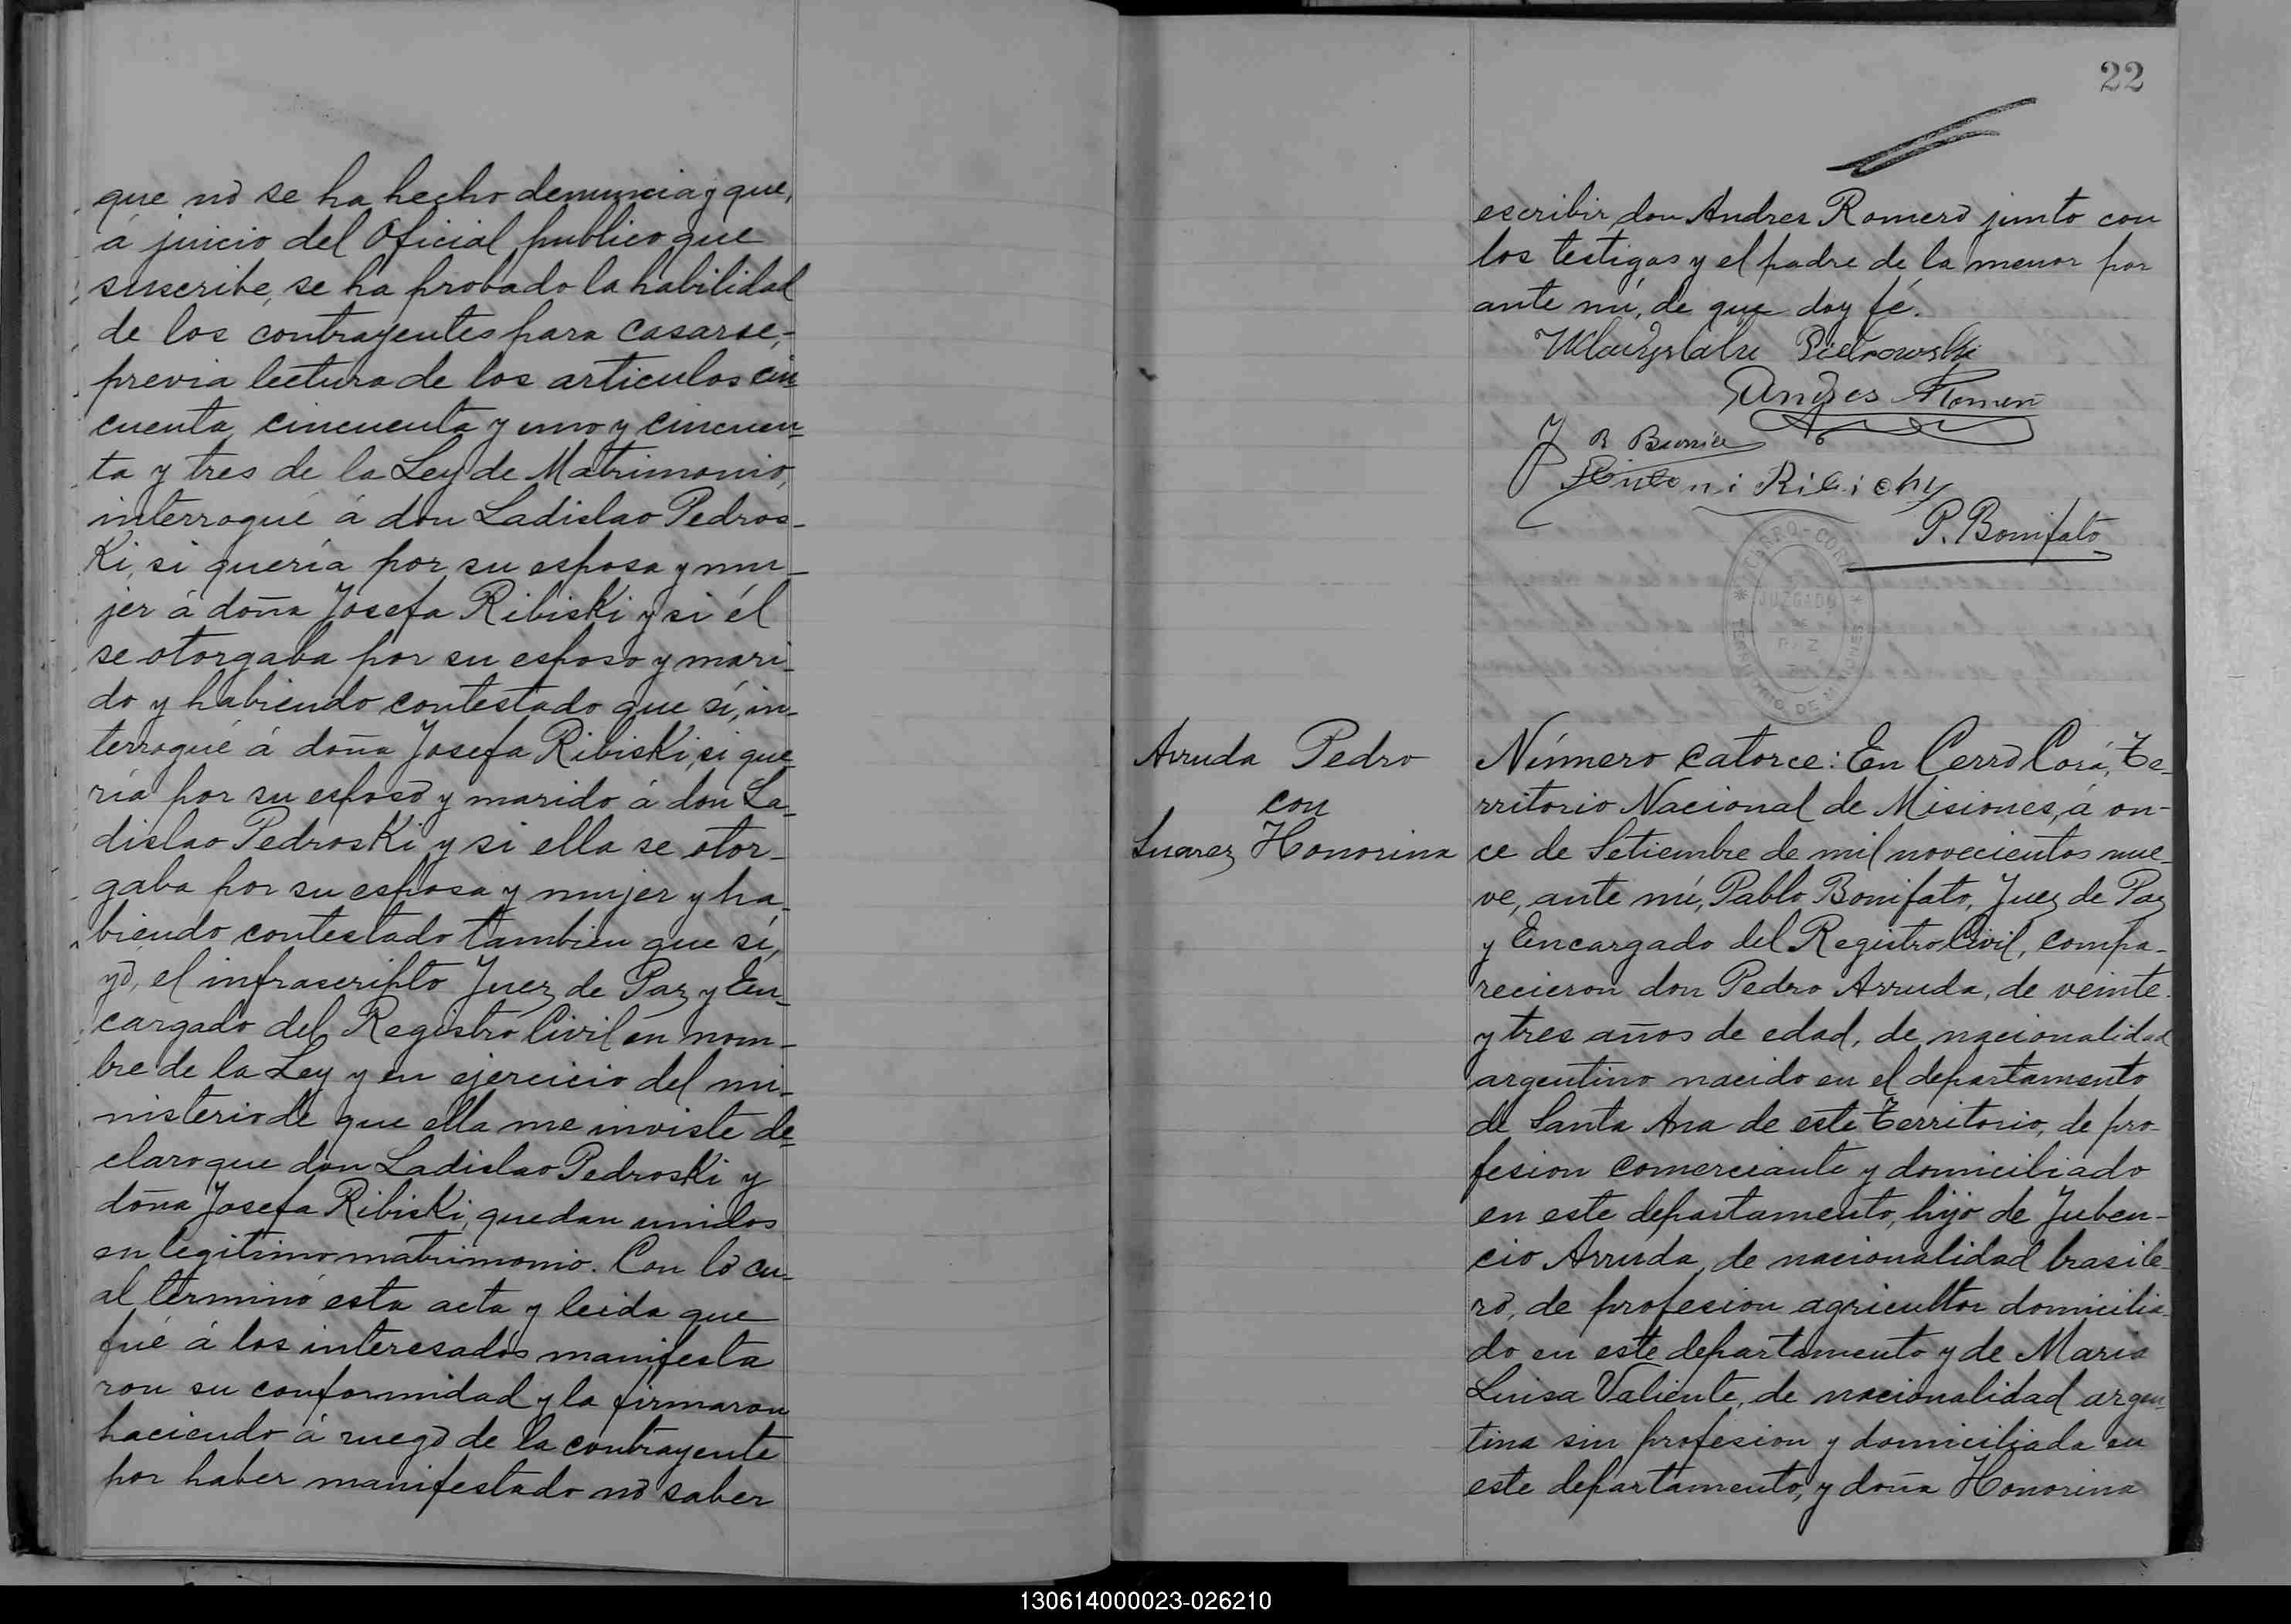 que no se ha hecho denuncia y que,
á juicio del Oficial publico que
suscribe, se ha probado la habilidad
de los contrayentes para casarse,-
previa lectura de los articulos cin
cuenta, cincuenta y uno y cincuen-
ta y tres de la Ley de Matrimonio,
interrogué á don Ladislao Pedros-
Ki, si quería por su esposa y mu-
jer á doña Josefa RibisKi y si él
se otorgaba por su esposo y mari-
do y habiendo contestado que sí, in-
terrogué á doña Josefa RibisKi, si que
ría por su esposo y marido á don La-
dislao PedrosKi y si ella se otor-
gaba por su esposa y mujer y ha-
biendo contestado tambien que sí,
yo, el infrascripto Juez de Paz y En-
cargado del Registro Civil en nom-
bre de la Ley y en ejercicio del mi-
nisterio de que ella me inviste de-
claro que don Ladislao PedrosKi y
doña Josefa RibisKi, quedan unidos
en legitimo matrimonio. Con lo cu-
al terminó esta acta y leida que
fué á los interesados manifesta
ron su conformidad y la firmaron
haciendo á ruego de la contrayente
por haber manifestado no saber
22
escribir, don Andres Romero junto con
los testigos y el padre de la menor por
ante mí, de que doy fé.
Pietrowski
Andres
J B
Antoni
P. Bonifato
CERRO-CORÁ
JUZGADO
DE
PAZ
TERRITORIO DE MISIONES
Arruda Pedro
con
Suarez Honorina
Número catorce: En Cerro Corá, Te-
rritorio Nacional de Misiones, á on-
ce de Setiembre de mil novecientos nue-
ve, ante mí, Pablo Bonifato, Juez de Paz
y Encargado del Registro Civil, compa-
recieron don Pedro Arruda, de veinte
y tres años de edad, de nacionalidad
argentino nacido en el departamento
de Santa Ana de este Territorio, de pro-
fesion comerciante y domiciliado
en este departamento, hijo de Juben-
cio Arruda, de nacionalidad brasile-
ro, de profesion agricultor domicilia-
do en este departamento y de Maria
Luisa Valiente, de nacionalidad argen-
tina sin profesion y domiciliada en
este departamento, y doña Honorina
130614000023-026210